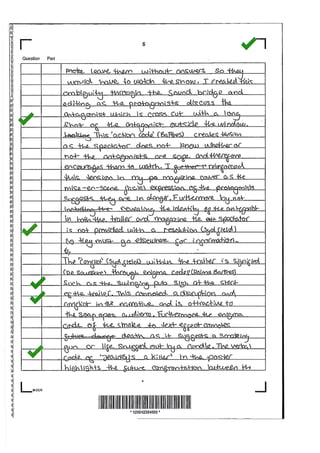 5
Question Part
make leave them without answers so they
would have to watch the show. I created this
ambiguity through the sound bridge and
editing as the protagonists discuss the
antagonist which is cross cut with a long
shot of the antagonist outside the window.
This 'action code' (Barthes) creates tension
as the spectator does not know whether or
not the antagonists are safe and therefore
encourages them to watch. I reinforced
this tension in my magazine cover as the
mise-en-scene facial expression of the protagonist
suggests they are in danger. Furthermore by not
revealing the identity of the antagonist
in both the trailer and magazine the spectator
is not provided with a resolution (Syd field)
so they must go elsewhere for information.
The 'conflict' (Syd field) within the trailer is signified
(De saussure) through enigma codes (Roland Barthes)
Such as the swinging pub sign at the start
of the trailer. This connoted a disruption and
conflict in the narrative and is attractive to
the soap opera audience. Furthermore the enigma
code of the smoke to text effect connotes
death as it suggests a smoking
gun or life snugged out by a candle. The verbal
code of "Jealousy's a killer" in the poster
highlights the future confrontation between the